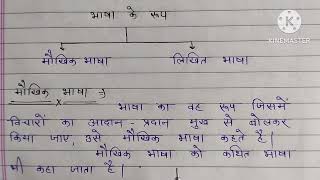 भाषा के रूप
KINEMASTER
मौखिक भाषा लिखित भाषा
मौखिक भाषा :-
भाषा का वह रूप जिसमें
विचारों का आदान - प्रदान मुख से बोलकर
किया जाए, उसे मौखिक भाषा कहते है।
मौखिक भाषा को कथित भाषा
भी कहा जाता है।